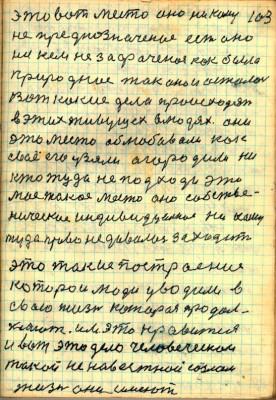 это вот место оно никому 103
не предназначение ест оно
ни кем не захраченое как была
природние так оно и осталос
Вот какие дела происходят
в этих живущех влюдях. они
это место облюбавали как
своё его узяли огородили ни
кто туда не подходи это
мое такое место оно собстве-
ническае индивидуалнае ни кому
туда право недавалос заходит
это такие построение
которои люди уводили в
своею жизн которая продол-
жают. им это нравится
и вот это дело человеческом
такой не навестной
жизн они имеют